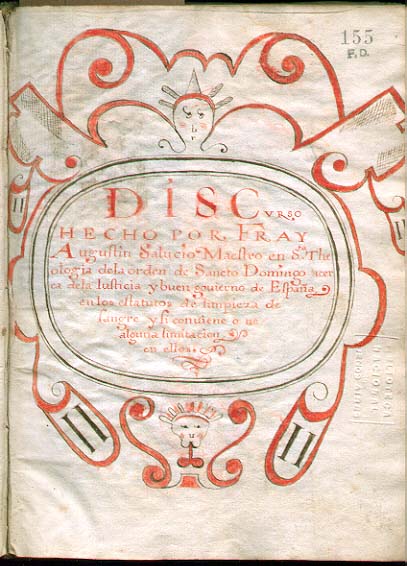 155
F.D.
DISCVRSO
HECHO POR FRAY
Augustin Salucio Maestro en S.ta The
ologia de la orden de Sancto Domingo acer
ca de la Iusticia y buen gouierno de España
en los estatutos de limpieza de
sangre y si conuiene o no
alguna limitacion
en ellos
II
II
II